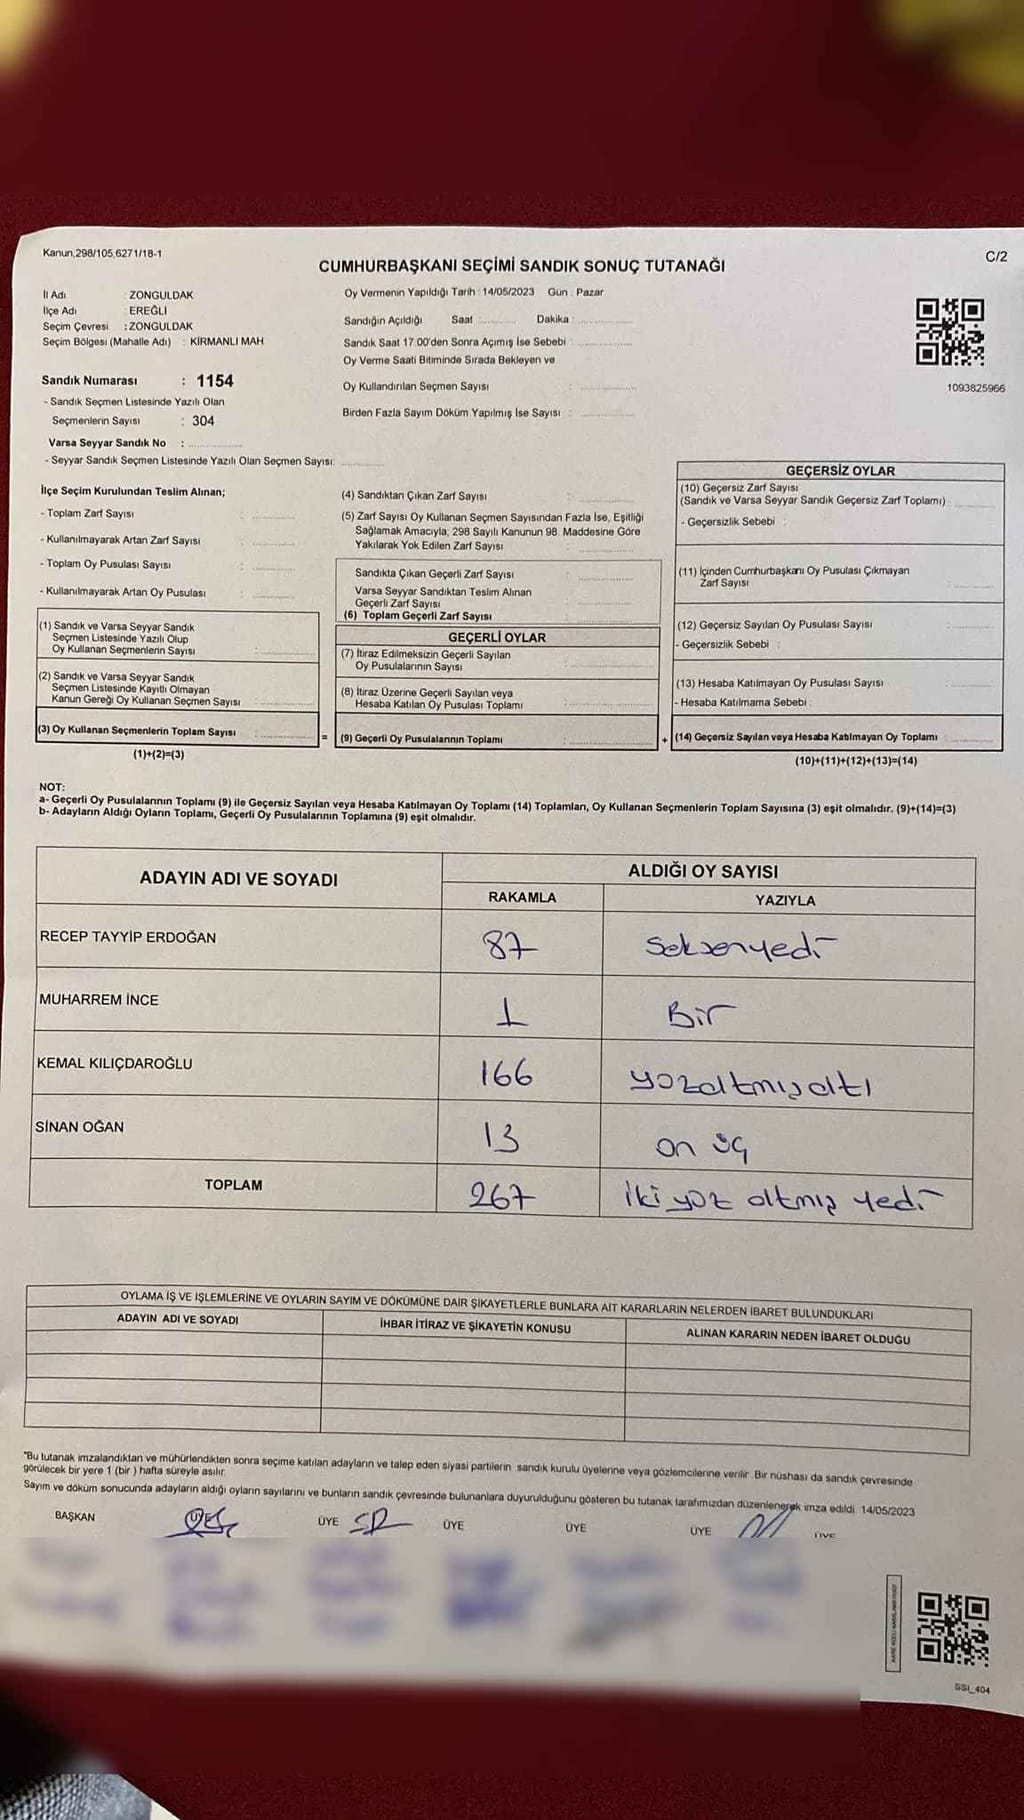 Kanun,298/105,6271/18-1
C/2
CUMHURBAŞKANI SEÇİMİ SANDIK SONUÇ TUTANAĞI
İl Adı ZONGULDAK
İlçe Adı : EREĞLİ
Seçim Çevresi : ZONGULDAK
Seçim Bölgesi (Mahalle Adı) : KİRMANLI MAH
Sandık Numarası : 1154
- Sandık Seçmen Listesinde Yazılı Olan
Seçmenlerin Sayısı : 304
Varsa Seyyar Sandık No :
- Seyyar Sandık Seçmen Listesinde Yazılı Olan Seçmen Sayısı:
Oy Vermenin Yapıldığı Tarih : 14/05/2023 Gün : Pazar
Sandığın Açıldığı Saat Dakika :
Sandık Saat 17.00'den Sonra Açımış İse Sebebi :
Oy Verme Saati Bitiminde Sırada Bekleyen ve
Oy Kullandırılan Seçmen Sayısı :
Birden Fazla Sayım Döküm Yapılmış İse Sayısı :
1093825966
İlçe Seçim Kurulundan Teslim Alınan;
- Toplam Zarf Sayısı :
- Kullanılmayarak Artan Zarf Sayısı :
- Toplam Oy Pusulası Sayısı :
- Kullanılmayarak Artan Oy Pusulası :
(1) Sandık ve Varsa Seyyar Sandık
Seçmen Listesinde Yazılı Olup
Oy Kullanan Seçmenlerin Sayısı :
(2) Sandık ve Varsa Seyyar Sandık
Seçmen Listesinde Kayıtlı Olmayan
Kanun Gereği Oy Kullanan Seçmen Sayısı :
(3) Oy Kullanan Seçmenlerin Toplam Sayısı :
(1)+(2)=(3)
(4) Sandıktan Çıkan Zarf Sayısı :
(5) Zarf Sayısı Oy Kullanan Seçmen Sayısından Fazla İse, Eşitliği
Sağlamak Amacıyla, 298 Sayılı Kanunun 98. Maddesine Göre
Yakılarak Yok Edilen Zarf Sayısı :
Sandıkta Çıkan Geçerli Zarf Sayısı :
Varsa Seyyar Sandıktan Teslim Alınan
Geçerli Zarf Sayısı :
(6) Toplam Geçerli Zarf Sayısı :
GEÇERLİ OYLAR
(7) İtiraz Edilmeksizin Geçerli Sayılan
Oy Pusulalarının Sayısı :
(8) İtiraz Üzerine Geçerli Sayılan veya
Hesaba Katılan Oy Pusulası Toplamı :
=
(9) Geçerli Oy Pusulalarının Toplamı :
GEÇERSİZ OYLAR
(10) Geçersiz Zarf Sayısı
(Sandık ve Varsa Seyyar Sandık Geçersiz Zarf Toplamı) :
- Geçersizlik Sebebi :
(11) İçinden Cumhurbaşkanı Oy Pusulası Çıkmayan
Zarf Sayısı
(12) Geçersiz Sayılan Oy Pusulası Sayısı :
- Geçersizlik Sebebi :
(13) Hesaba Katılmayan Oy Pusulası Sayısı :
- Hesaba Katılmama Sebebi :
+
(14) Geçersiz Sayılan veya Hesaba Katılmayan Oy Toplamı :
(10)+(11)+(12)+(13)=(14)
NOT:
a- Geçerli Oy Pusulalarının Toplamı (9) ile Geçersiz Sayılan veya Hesaba Katılmayan Oy Toplamı (14) Toplamları, Oy Kullanan Seçmenlerin Toplam Sayısına (3) eşit olmalıdır. (9)+(14)=(3)
b- Adayların Aldığı Oyların Toplamı, Geçerli Oy Pusulalarının Toplamına (9) eşit olmalıdır.
ADAYIN ADI VE SOYADI ALDIĞI OY SAYISI
RAKAMLA YAZIYLA
RECEP TAYYİP ERDOĞAN 87 seksenyedi
MUHARREM İNCE 1 Bir
KEMAL KILIÇDAROĞLU 166 yüzaltmışaltı
SİNAN OĞAN 13 on üç
TOPLAM 267 iki yüz altmış yedi
OYLAMA İŞ VE İŞLEMLERİNE VE OYLARIN SAYIM VE DÖKÜMÜNE DAİR ŞİKAYETLERLE BUNLARA AİT KARARLARIN NELERDEN İBARET BULUNDUKLARI
ADAYIN ADI VE SOYADI İHBAR İTİRAZ VE ŞİKAYETİN KONUSU ALINAN KARARIN NEDEN İBARET OLDUĞU
*Bu tutanak imzalandıktan ve mühürlendikten sonra seçime katılan adayların ve talep eden siyasi partilerin sandık kurulu üyelerine veya gözlemcilerine verilir. Bir nüshası da sandık çevresinde
görülecek bir yere 1 (bir) hafta süreyle asılır.
Sayım ve döküm sonucunda adayların aldığı oyların sayılarını ve bunların sandık çevresinde bulunanlara duyurulduğunu gösteren bu tutanak tarafımızdan düzenlenerek imza edildi. 14/05/2023
BAŞKAN ÜYE ÜYE ÜYE ÜYE ÜYE ÜYE
SSI_404